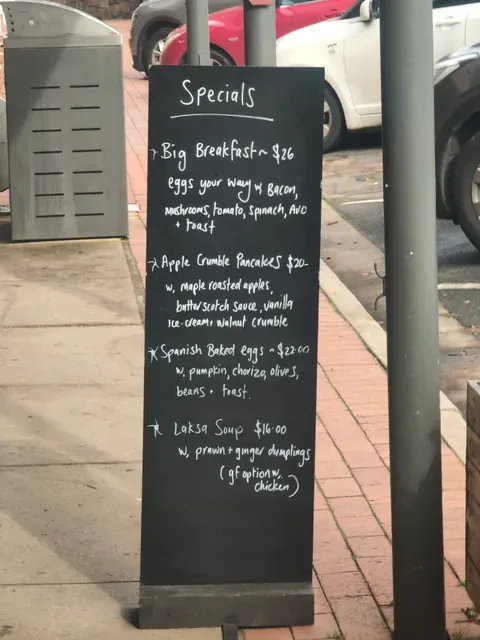 Specials
* Big Breakfast ~ $26
eggs your way w Bacon,
mushrooms, tomato, spinach, AVO
+ toast
* Apple Crumble Pancakes $20-
w, maple roasted apples,
butterscotch sauce, vanilla
ice-cream + walnut crumble
* Spanish Baked eggs ~ $22.00
w, pumpkin, chorizo, olives,
beans + toast.
* Laksa Soup $16.00
w, prawn + ginger dumplings
(gf option w,
chicken)